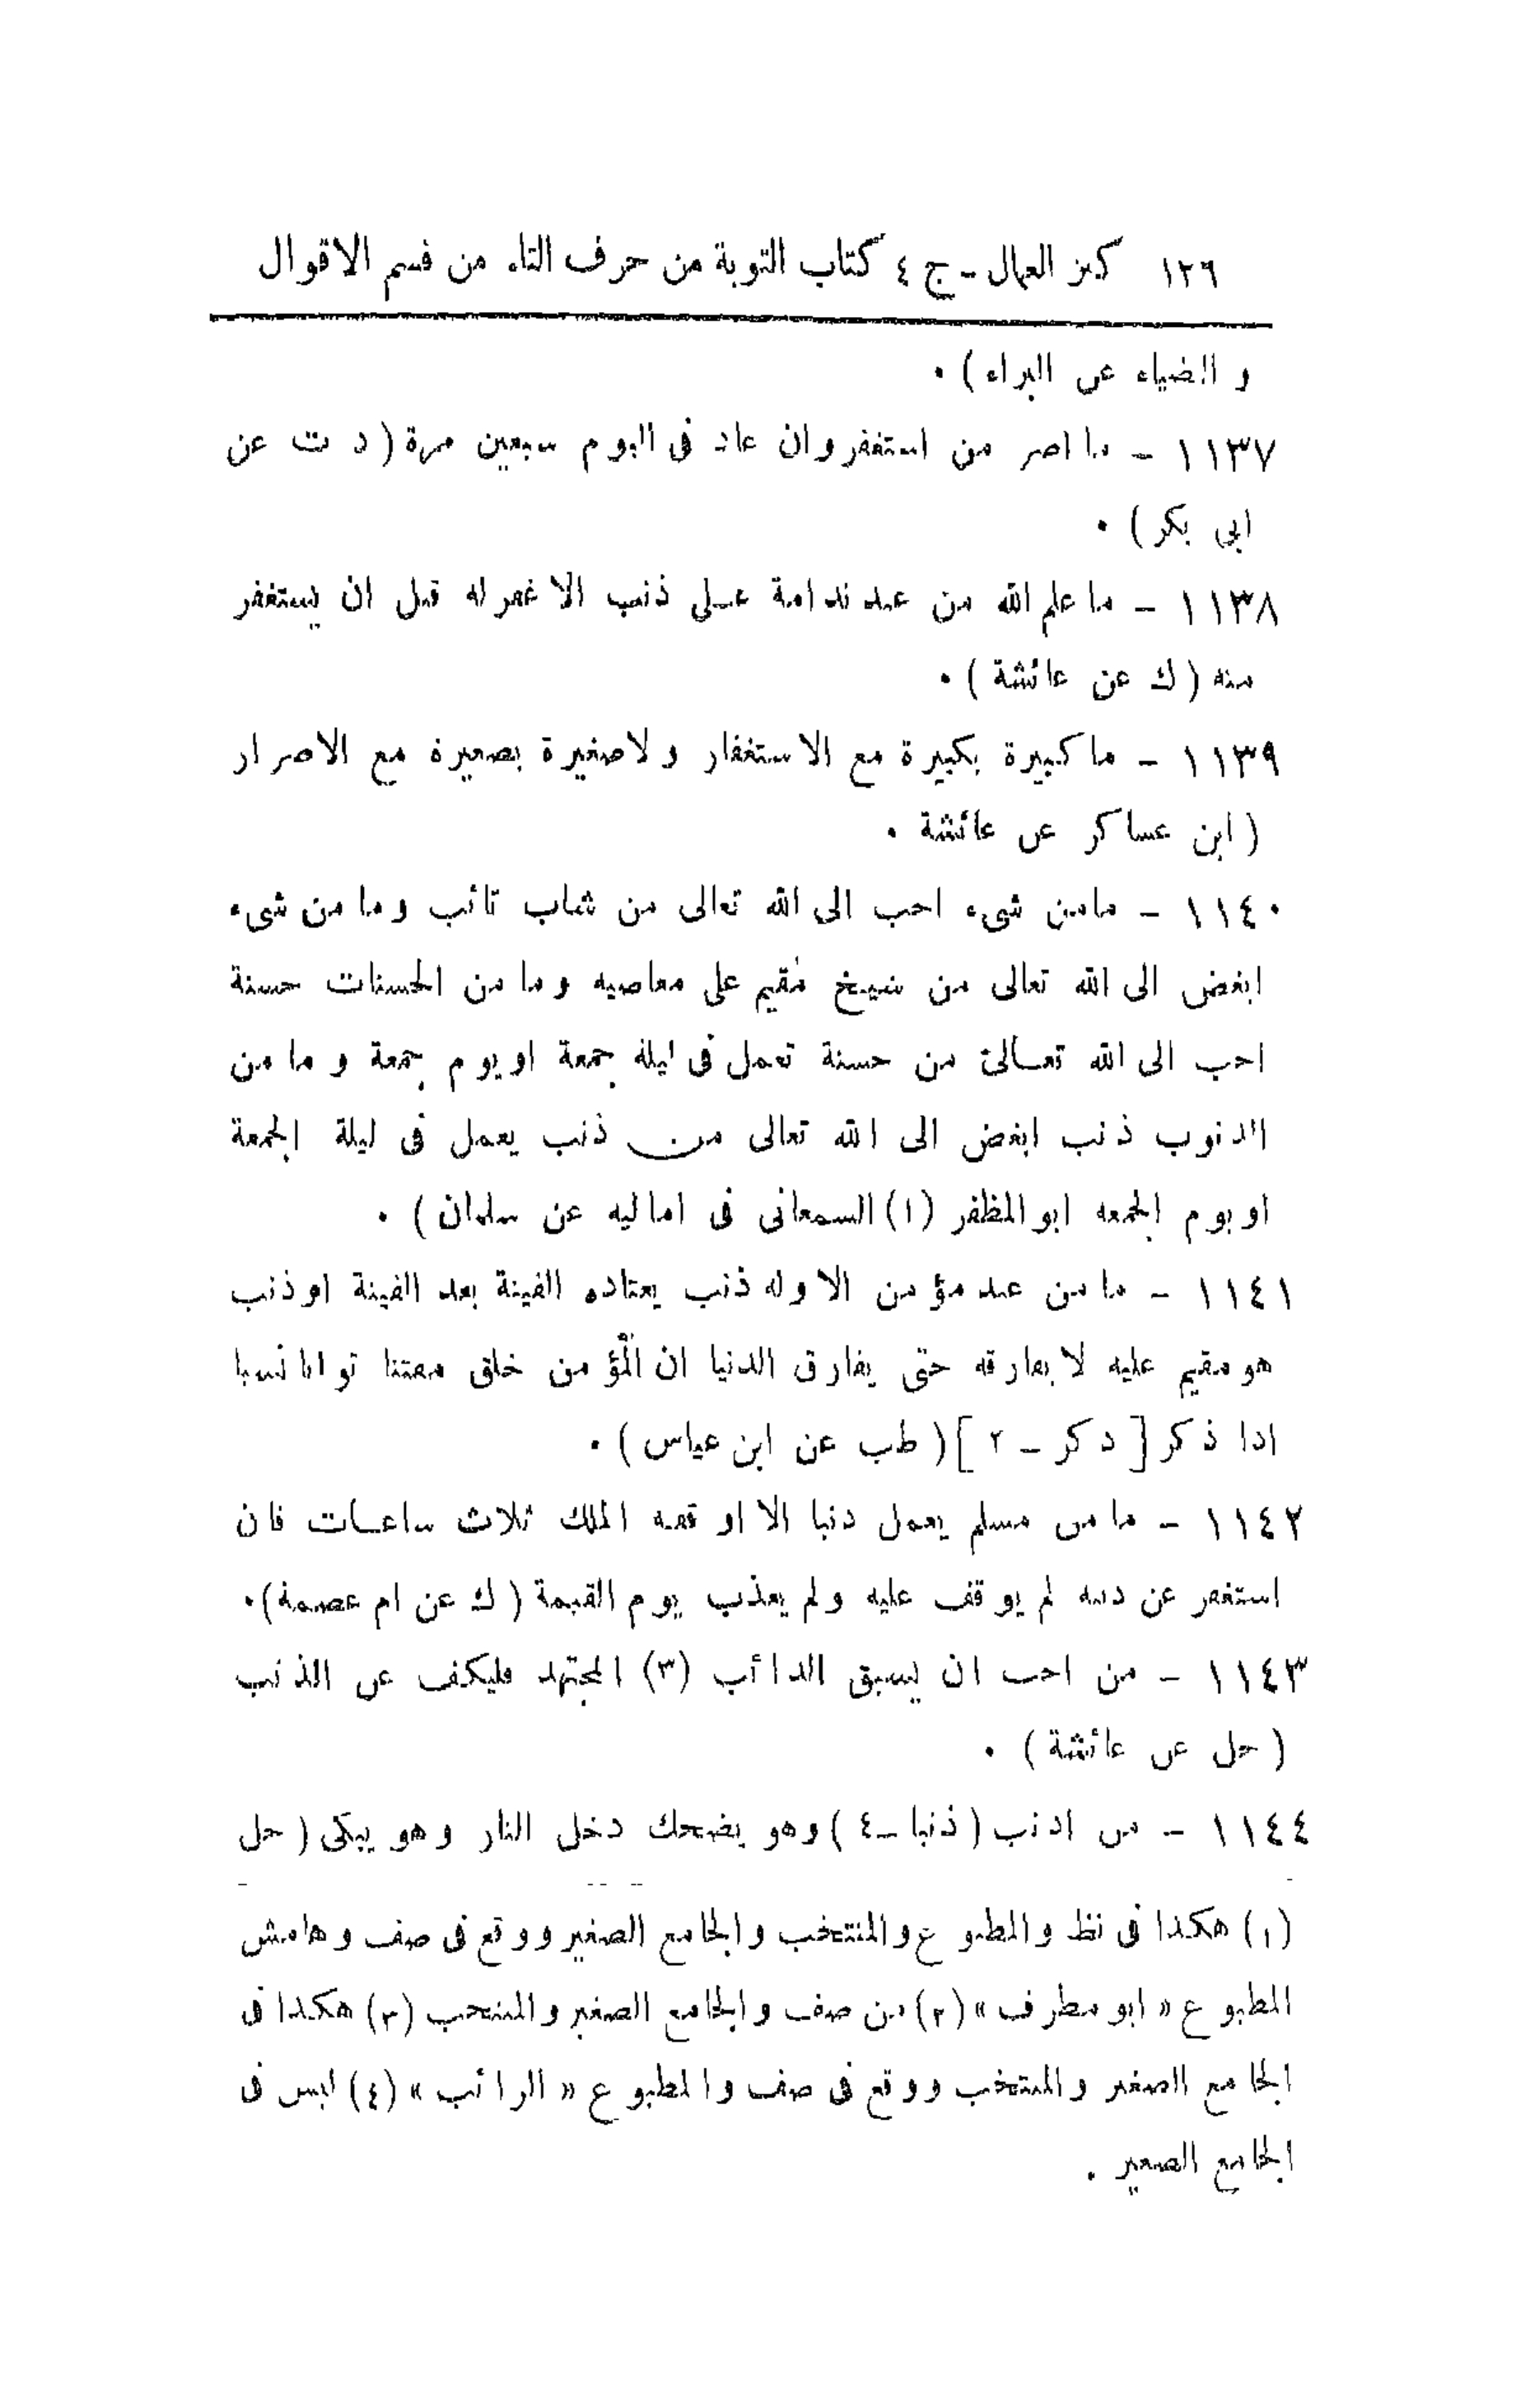 ١٢٦ كنز العمال - ج ٤ كتاب التوبة من حرف التاء من قسم الاقوال
و الضياء عن البراء) ٠
١١٣٧ - ما اصر من استغفر وان عاد فى اليوم سبعين مرة (د ت عن
ابى بكر) ٠
١١٣٨ - ما علم الله من عبد ندامة على ذنب الا غفر له قبل ان يستغفر
منه (ك عن عائشة) ٠
١١٣٩ - ما كبيرة بكبيرة مع الاستغفار ولا صغيرة بصغيرة مع الاصرار
(ابن عساكر عن عائشة ٠
١١٤٠ - مامن شىء احب الى الله تعالى من شاب تائب وما من شىء
ابغض الى الله تعالى من شيخ مقيم على معاصيه وما من الحسنات حسنة
احب الى الله تعالى من حسنة تعمل فى ليلة جمعة او يوم جمعة وما من
الذنوب ذنب ابغض الى الله تعالى من ذنب يعمل فى ليلة الجمعة
او يوم الجمعة ابو المظفر (١) السمعانى فى اماليه عن سلمان) ٠
١١٤١ - ما من عبد مؤمن الا وله ذنب يعتاده الفينة بعد الفينة او ذنب
هو مقيم عليه لا يفارقه حتى يفارق الدنيا ان المؤمن خلق مفتنا توابا نسيا
اذا ذكر [ذكر - ٢] (طب عن ابن عباس) ٠
١١٤٢ - ما من مسلم يعمل ذنبا الا او قفه الملك ثلاث ساعات فان
استغفر عن ذنبه لم يوقف عليه ولم يعذب يوم القيمة (ك عن ام عصمة) ٠
١١٤٣ - من احب ان يسبق الدائب (٣) المجتهد فليكف عن الذنب
(حل عن عائشة) ٠
١١٤٤ - من اذنب (ذنبا - ٤) وهو يضحك دخل النار وهو يبكى (حل
(١) هكذا فى نظ والمطبوع والمنتخب والجامع الصغير ووقع فى صف وهامش
المطبوع « ابو مطرف » (٢) من صف والجامع الصغير والمنتخب (٣) هكذا فى
الجامع الصغير والمنتخب ووقع فى صف والمطبوع « الرائب » (٤) ليس فى
الجامع الصغير .